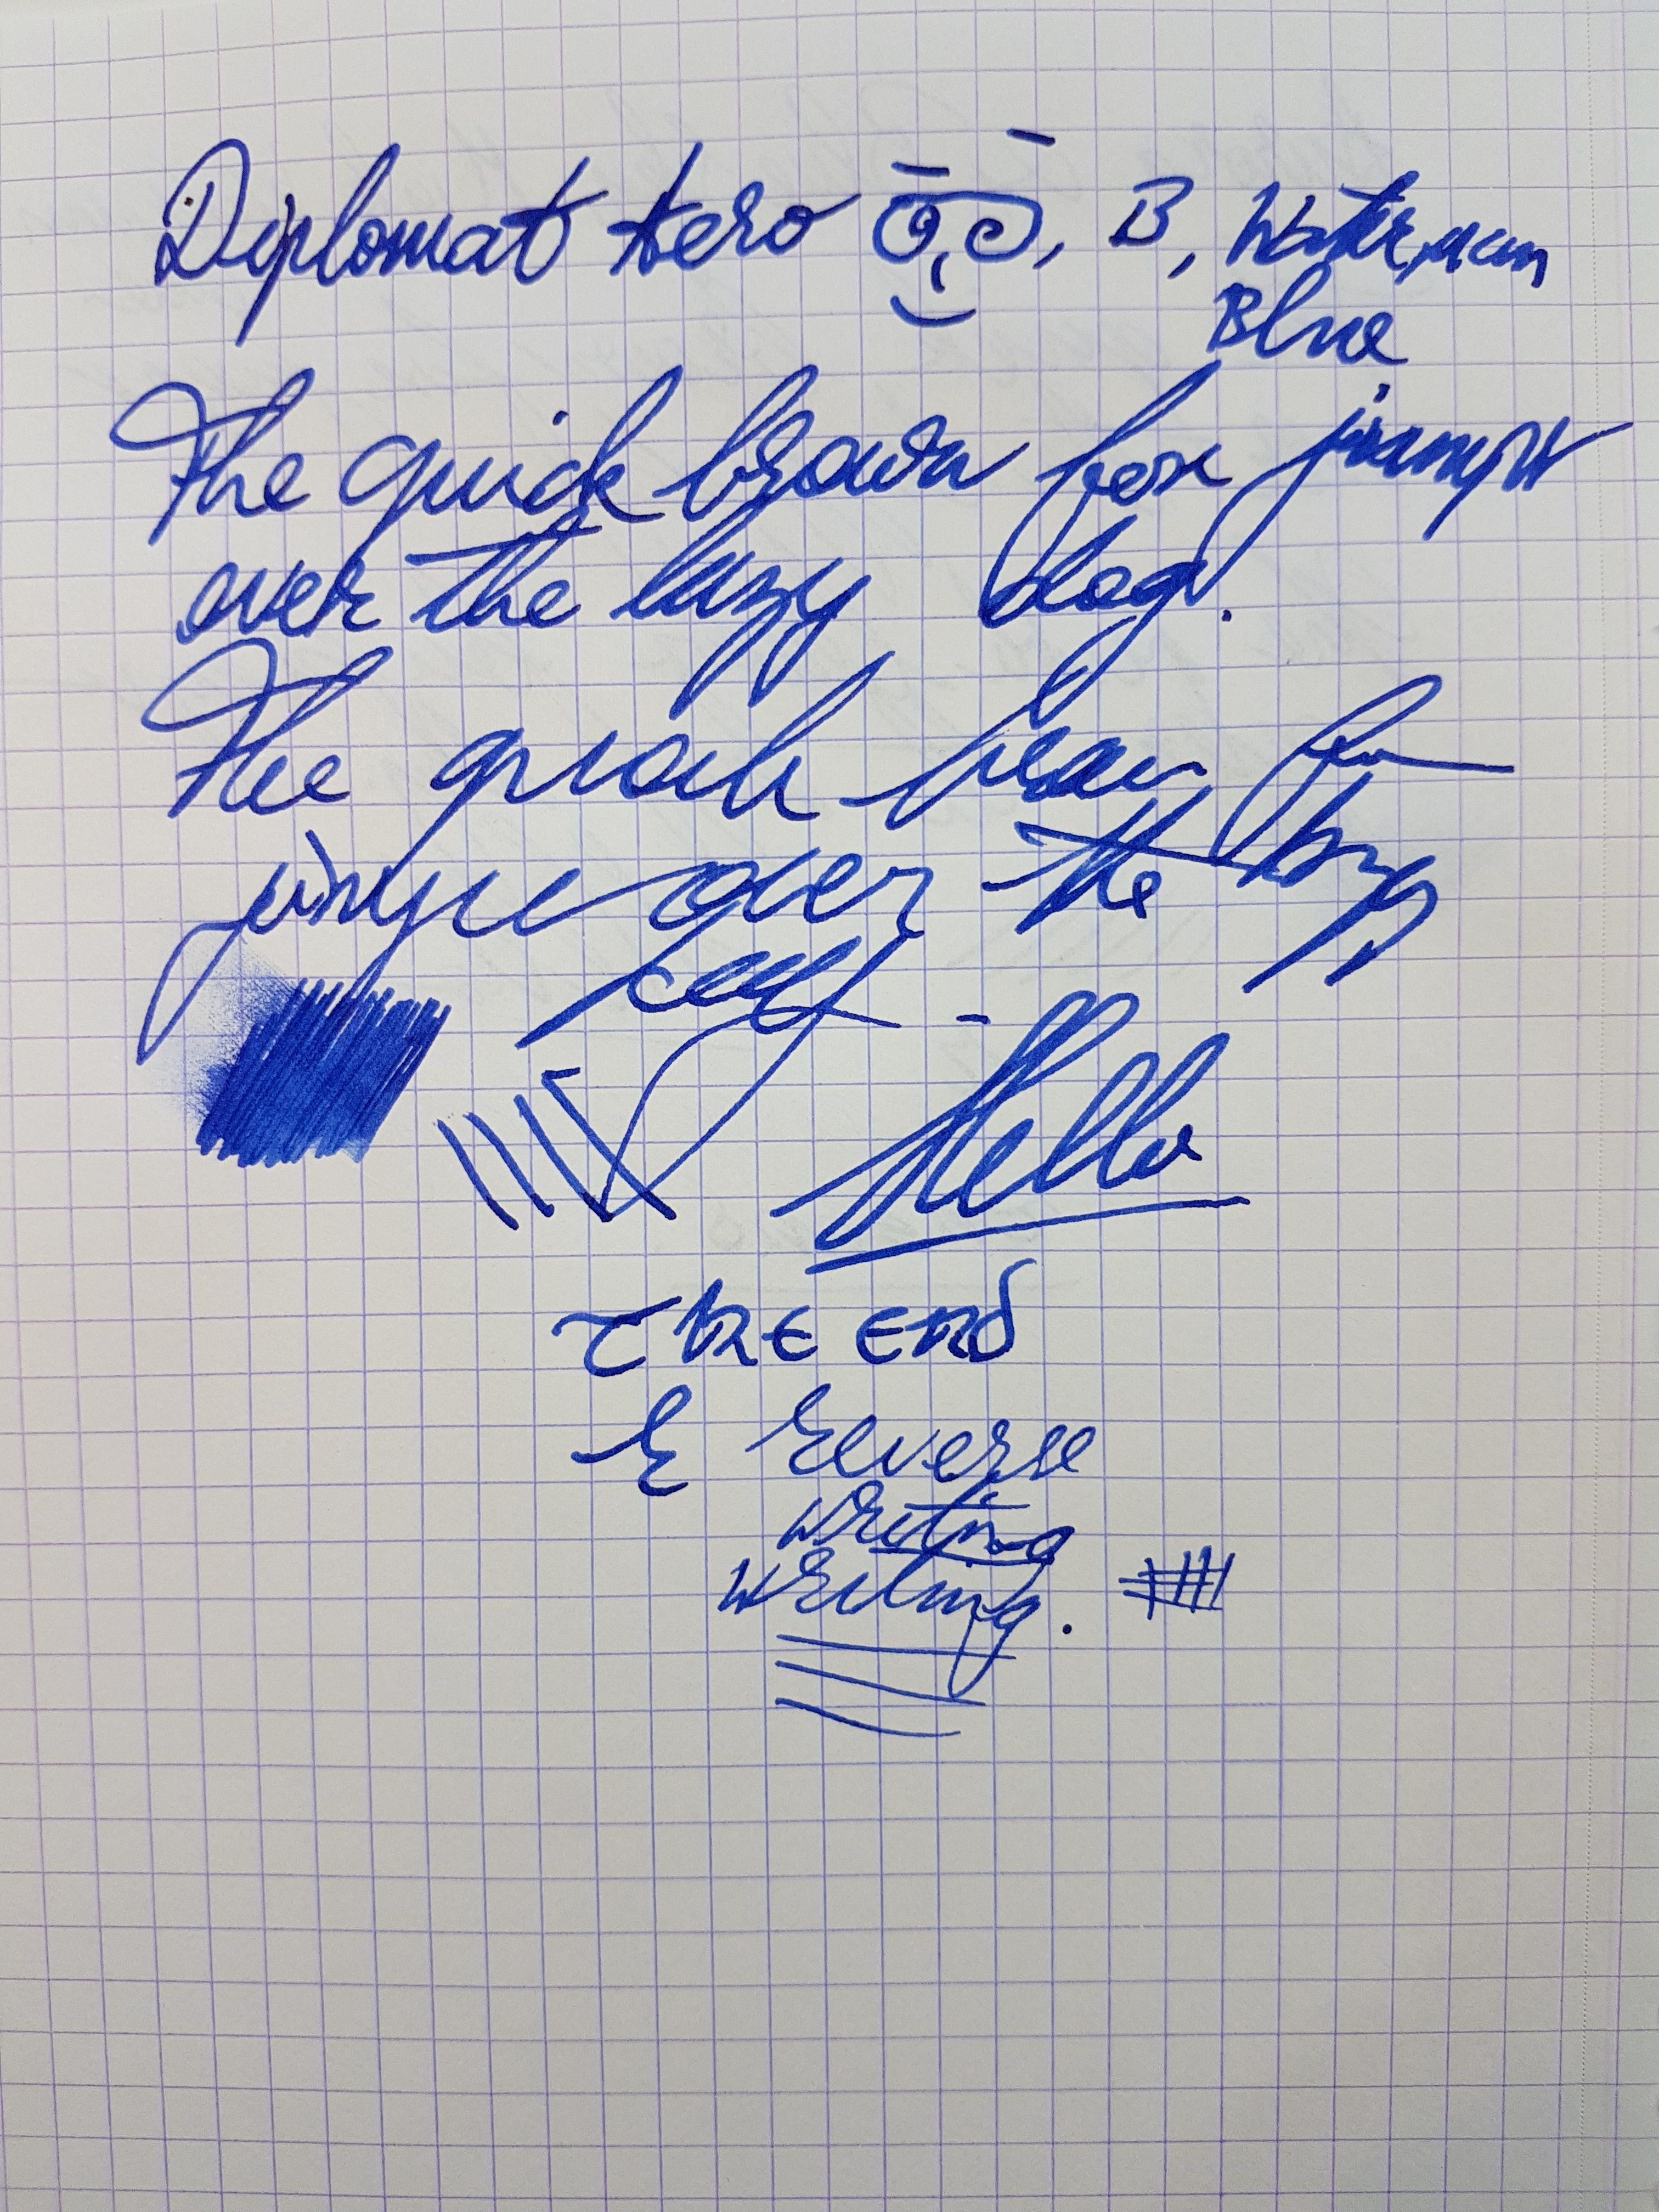 Diplomat Aero , B, Waterman
Blue
The quick brown fox jumps
over the lazy dog.
The quick brown
over the
Hello
The end
& Reverse
writing
writing.